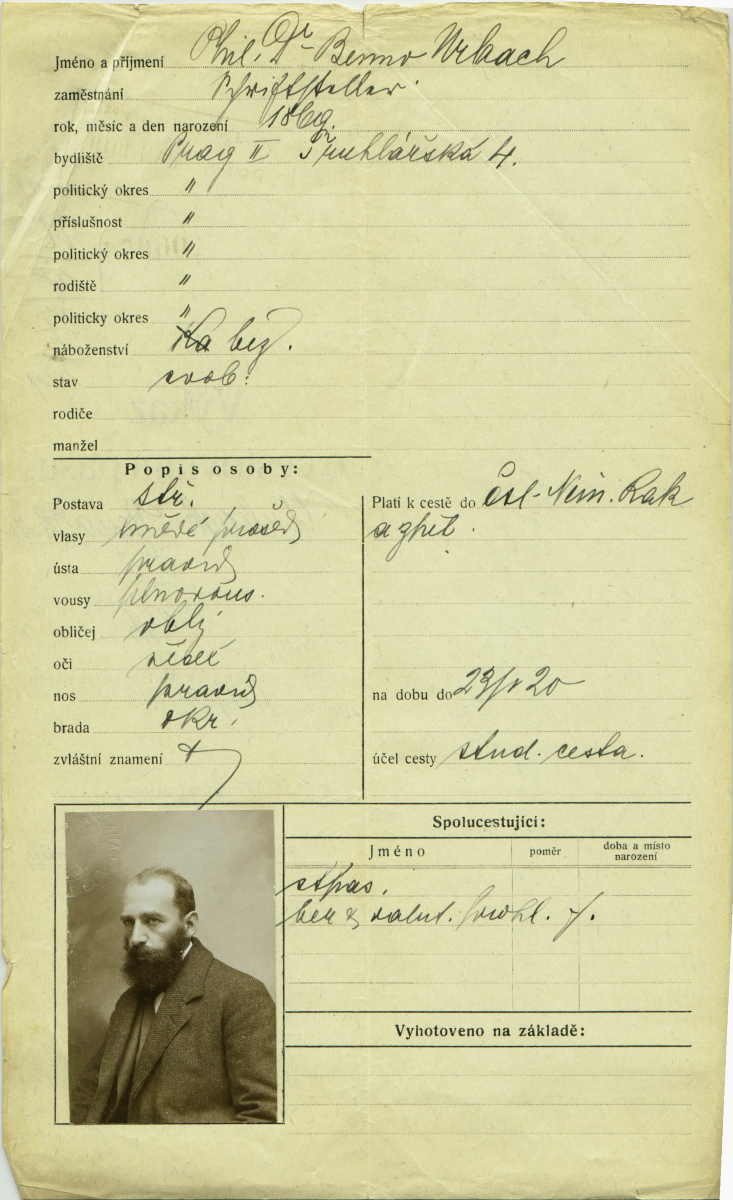 Jméno a příjmení Phil. Dr Benno Urbach
zaměstnání Schriftsteller.
rok, měsíc a den narození 1869.
bydliště Prag II Truhlářská 4.
politický okres "
příslušnost "
politický okres "
rodiště "
politicky okres "
náboženství bez.
stav svob:
rodiče
manžel
Popis osoby:
Postava stř.
vlasy hnědé prošed
ústa pravid
vousy plnovous.
obličej oblý
oči
nos pravid
brada okr.
zvláštní znamení
Platí k cestě do Čsl. Něm. Rak
a zpět.
na dobu do 20
účel cesty stud. cesta.
Spolucestující:
Jméno poměr doba a místo narození
valut. prohl.
Vyhotoveno na základě: